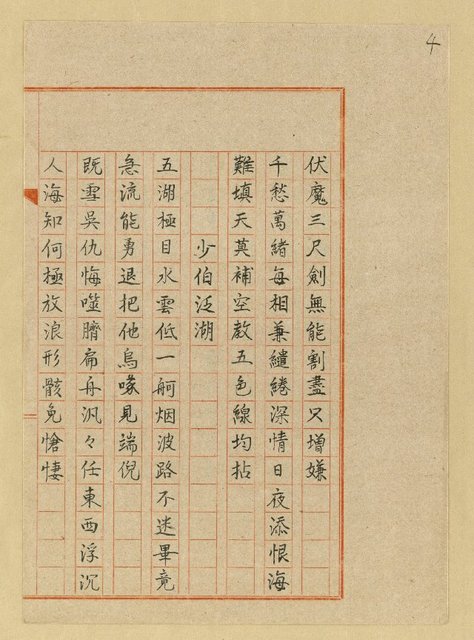 4
伏魔三尺劍無能割盡又增嫌
千愁萬緒每相兼繾綣深情日夜添恨海
難填天莫補空教五色線均拈
少伯泛湖
五湖極目水雲低一舸烟波路不迷畢竟
急流能勇退把他烏喙見端倪
既雪吳仇悔噬臍扁舟汎々任東西浮沉
人海知何極放浪形骸免愴悽